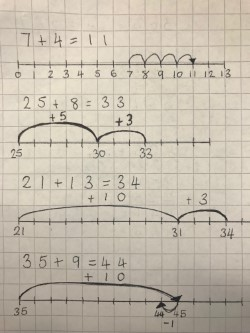 7 + 4 = 11
0 1 2 3 4 5 6 7 8 9 10 11 12 13
25 + 8 = 33
+5 +3
25 30 33
21 + 13 = 34
+10 +3
21 31 34
35 + 9 = 44
+10
35 44 45
-1